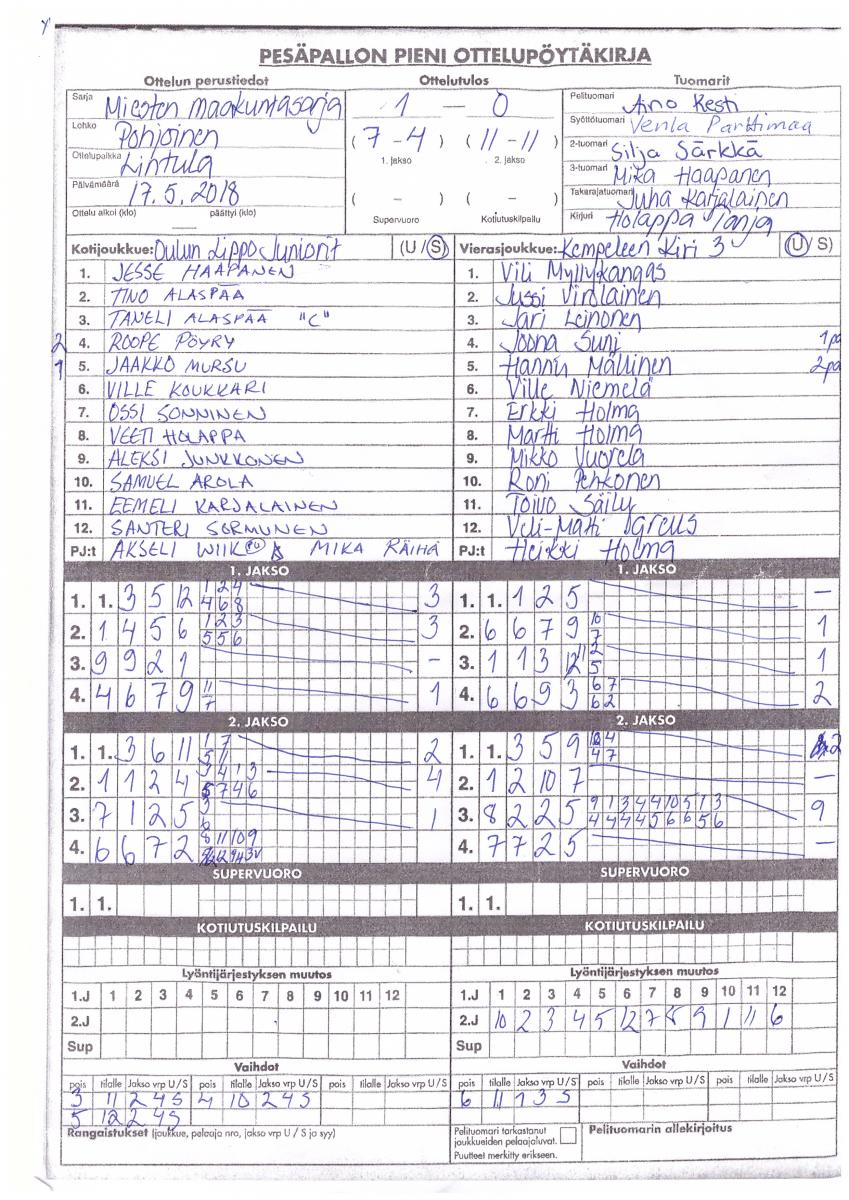 PESÄPALLON PIENI OTTELUPÖYTÄKIRJA
Ottelun perustiedot
Sarja Miesten maakuntasarja
Lohko Pohjoinen
Ottelupaikka Lintula
Päivämäärä 17.5.2018
Ottelu alkoi (klo) — päättyi (klo)
Ottelutulos
1 — 0
( 7 - 4 ) ( 11 - 11 )
1. jakso 2. jakso
( - ) ( - )
Supervuoro Kotiutuskilpailu
Tuomarit
Pelituomari Aino Kesti
Syöttötuomari Venla Parttimaa
2-tuomari Silja Särkkä
3-tuomari Mika Haapanen
Takarajatuomari Juha Karjalainen
Kirjuri Holappa Tanja
Kotijoukkue: Oulun Lippo Juniorit (U / S)
1. JESSE HAAPANEN
2. TINO ALASPÄÄ
3. TANELI ALASPÄÄ "C"
2 4. ROOPE PÖYRY
1 5. JAAKKO MURSU
6. VILLE KOUKKARI
7. OSSI SONNINEN
8. VEETI HOLAPPA
9. ALEKSI JUNKKONEN
10. SAMUEL AROLA
11. EEMELI KARJALAINEN
12. SANTERI SORMUNEN
PJ:t AKSELI WIIK MIKA RÄIHÄ
Vierasjoukkue: Kempeleen Kiri 3 (U / S)
1. Vili Myllykangas
2. Jussi Virolainen
3. Jari Leinonen
4. Joona Suni 1pa
5. Hannu Mällinen 2pa
6. Ville Niemelä
7. Erkki Holma
8. Martti Holma
9. Mikko Vuorela
10. Roni Pehkonen
11. Toivo Säily
12. Veli-Matti Igreus
PJ:t Heikki Holma
1. JAKSO
1. 1. 3 5 12 1 2 4 3
4 6 8
2. 1 4 5 6 1 2 3 3
5 5 6
3. 9 9 2 1 –
4. 4 6 7 9 11 1
7
1. JAKSO
1. 1. 1 2 5 –
2. 6 6 7 9 10 1
7
3. 1 1 3 12 2 1
5
4. 6 6 9 3 6 7 2
6 2
2. JAKSO
1. 1. 3 6 11 1 7 2
5 11
2. 1 1 2 4 3 4 1 3 4
5 7 4 6
3. 7 1 2 5 3 1
6
4. 6 6 7 2 8 11 10 9
2. JAKSO
1. 1. 3 5 9 10 4 2
4 7
2. 1 2 10 7 –
3. 8 2 2 5 9 1 3 4 4 10 5 1 3 9
4 4 4 4 5 6 6 5 6
4. 7 7 2 5 –
SUPERVUORO
1. 1.
SUPERVUORO
1. 1.
KOTIUTUSKILPAILU
KOTIUTUSKILPAILU
Lyöntijärjestyksen muutos
1.J 1 2 3 4 5 6 7 8 9 10 11 12
2.J
Sup
Lyöntijärjestyksen muutos
1.J 1 2 3 4 5 6 7 8 9 10 11 12
2.J 10 2 3 4 5 12 7 8 9 1 11 6
Sup
Vaihdot
pois tilalle Jakso vrp U / S pois tilalle Jakso vrp U / S pois tilalle Jakso vrp U / S
3 11 2 4 S 4 10 2 4 S
5 12 2 4 S
Vaihdot
pois tilalle Jakso vrp U / S pois tilalle Jakso vrp U / S pois tilalle Jakso vrp U / S
6 11 1 3 S
Rangaistukset (joukkue, pelaaja nro, jakso vrp U / S ja syy)
Pelituomari tarkastanut
joukkueiden pelaajaluvat.
Puutteet merkitty erikseen.
Pelituomarin allekirjoitus